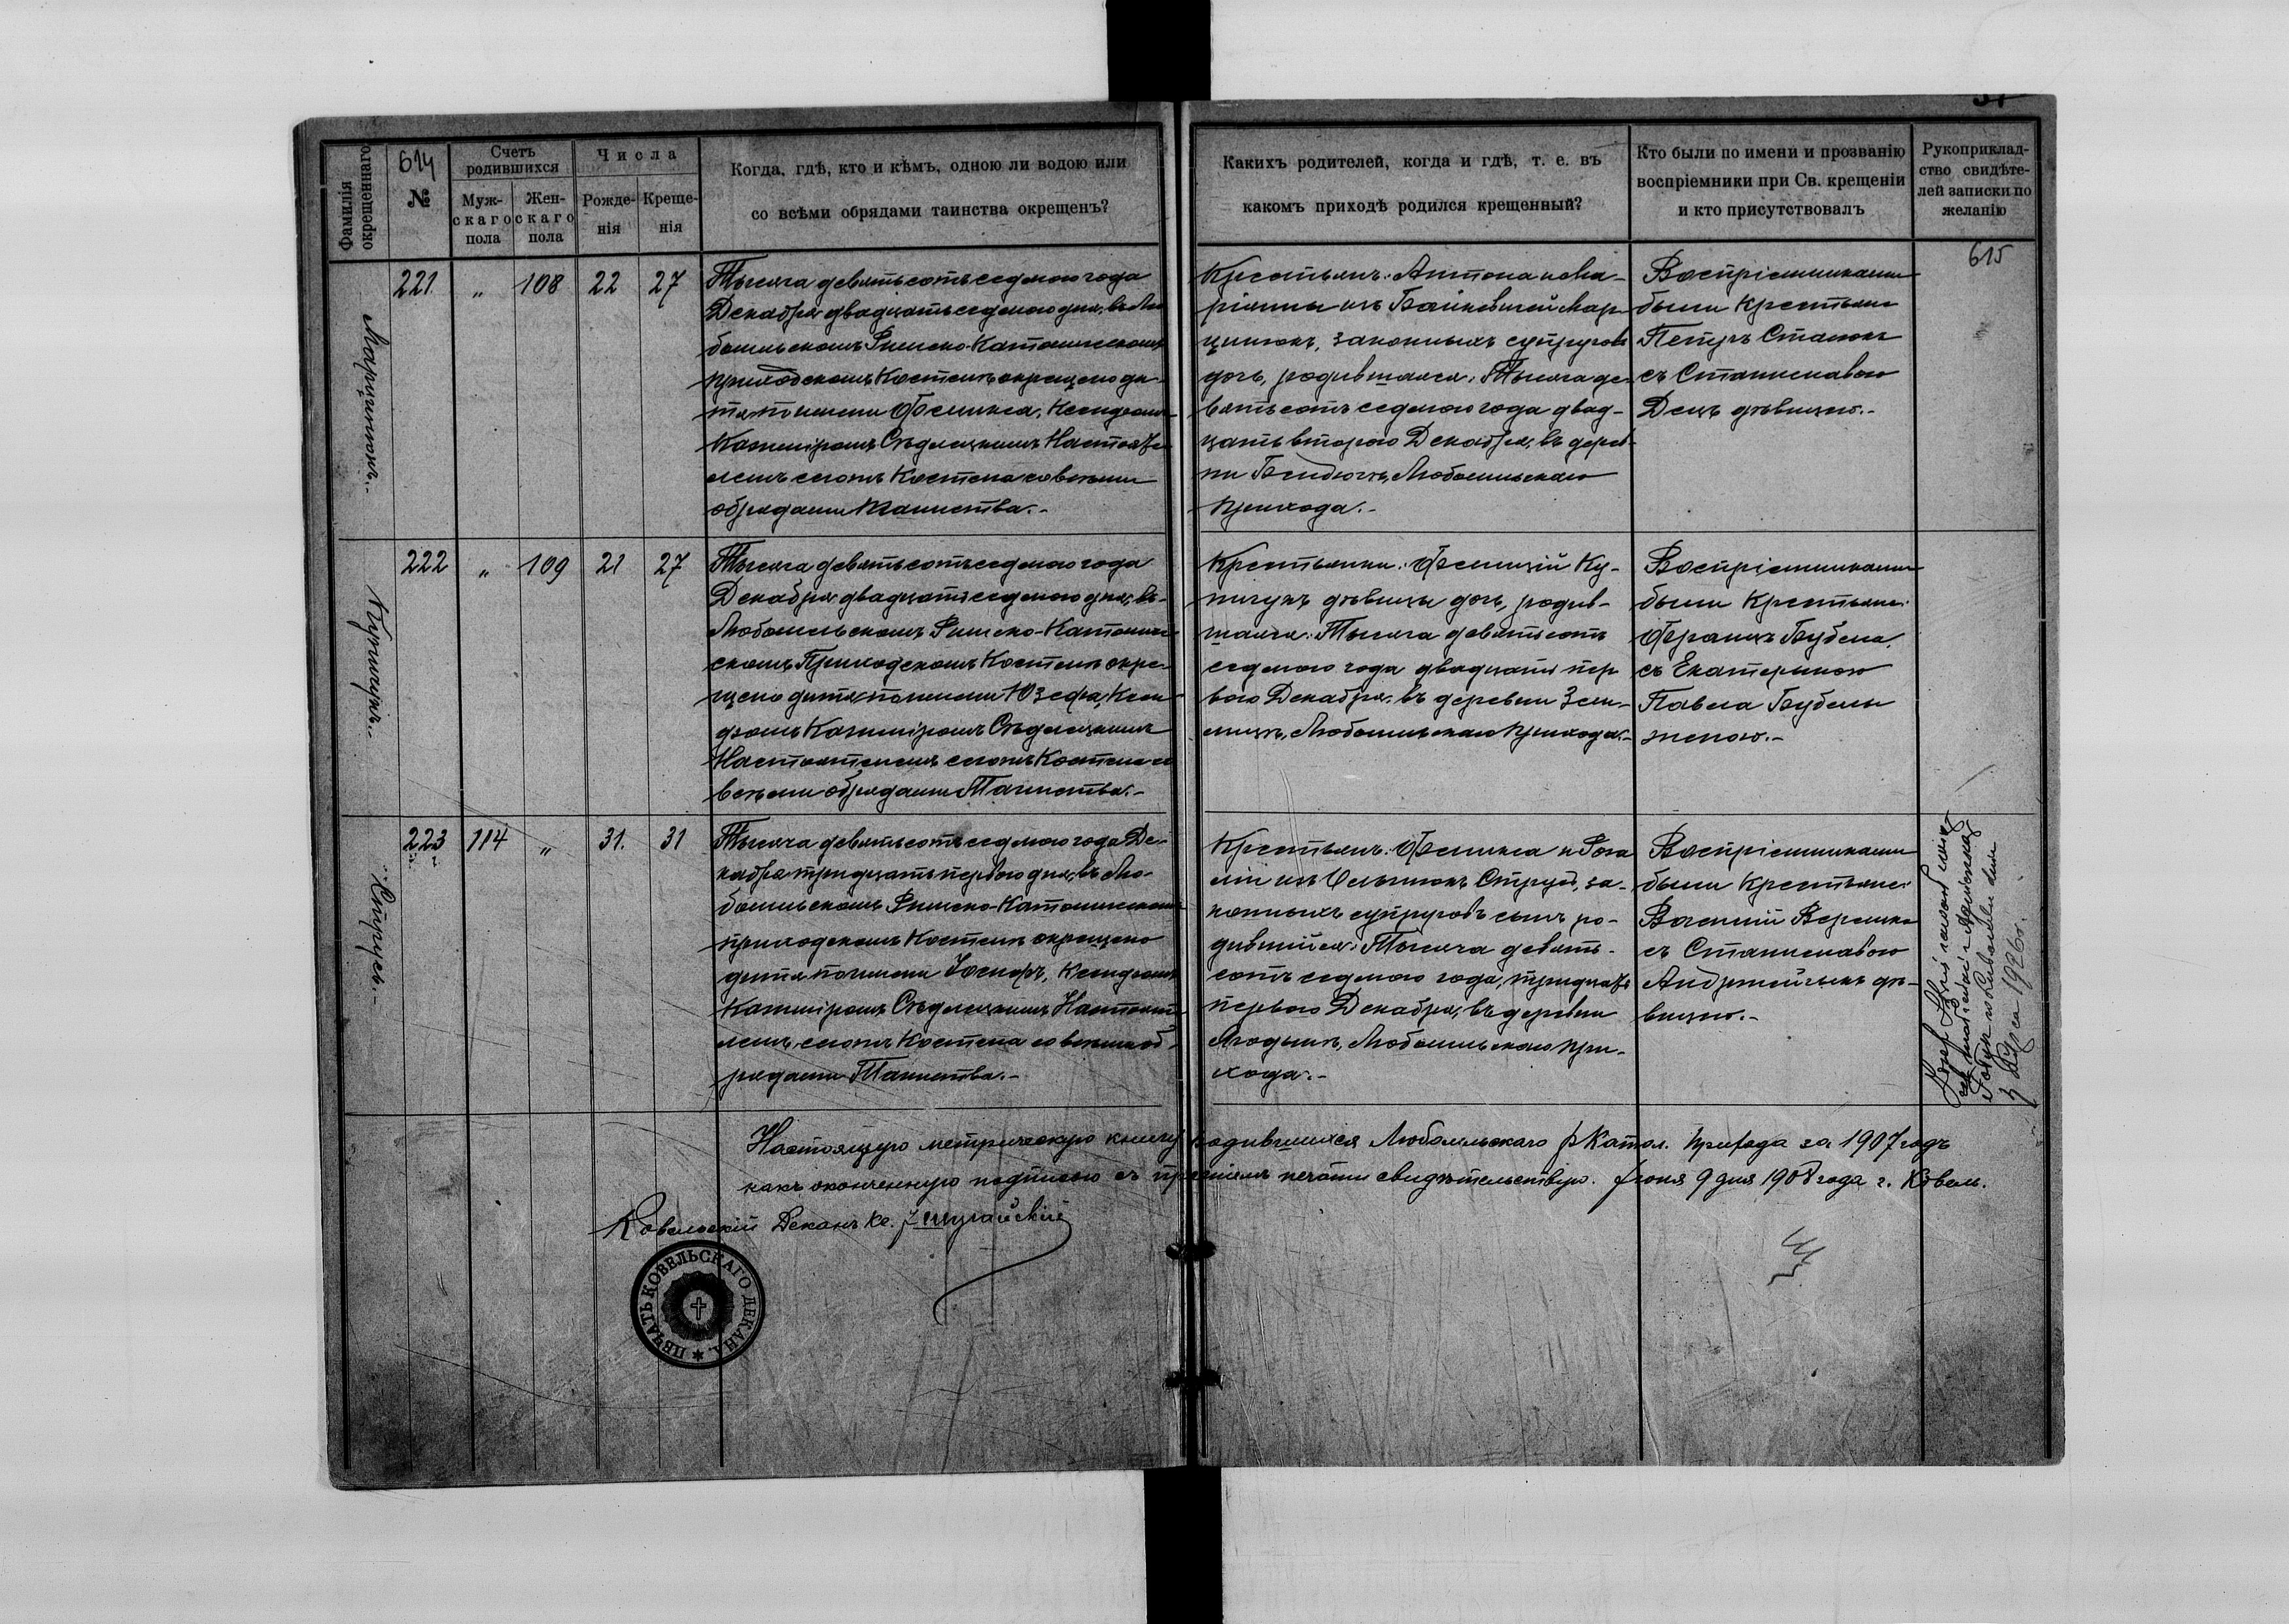 614
Фамилія окрещеннаго
№
Счетъ родившихся
Муж-
скаго
пола
Жен-
скаго
пола
Числа
Рожде-
нія
Креще-
нія
Когда, гдѣ, кто и кѣмъ, одною ли водою или
со всѣми обрядами таинства окрещенъ?
Какихъ родителей, когда и гдѣ, т. е. въ
какомъ приходѣ родился крещенный?
Кто были по имени и прозванію
воспріемники при Св. крещеніи
и кто присутствовалъ
Рукоприклад-
ство свидѣте-
лей записки по
желанію
615
Марцинюкъ.-
221
„
108
22
27
Тысяча девятьсотъ седмого года
Декабря двадцать седмого дня, въ Лю
бомльскомъ Римско-Католическомъ
приходскомъ Костелѣ окрещено ди-
тя по имени Феликса, Ксендзомъ
Казиміромъ Сѣдлецкимъ Настояте
лемъ сего-жъ Костела со всѣми
обрядами Таинства.-
Крестьянъ: Антона и Ма-
ріанны изъ Войковичей Мар-
цинюкъ, законныхъ супруговъ
дочь, родившаяся: Тысяча де-
вятьсотъ седмого года двад-
цать второго Декабря, въ дерев-
ни Биндюгѣ, Любомльскаго
прихода.-
Воспріемниками
были Крестьяне
Петръ Станюкъ
съ Станиславою
Децъ дѣвицею.-
Купичукъ.-
222
„
109
21
27
Тысяча девятьсотъ седмого года
Декабря двадцать седмого дня, въ
Любомльскомъ Римско-Католиче
скомъ Приходскомъ Костелѣ окре-
щено дитя по имени Юзефа, Ксен
дзомъ Казиміромъ Сѣдлецкимъ
Настоятелемъ сего-жъ Костела со
всѣми обрядами Таинства.-
Крестьянки: Фелиціи Ку-
пичукъ дѣвицы дочь, родив-
шаяся: Тысяча девятьсотъ
седмого года двадцать пер
вого Декабря, въ деревни Зем-
лицѣ, Любомльскаго прихода.-
Воспріемниками
были Крестьяне:
Францъ Бубела,
съ Екатериною
Павла Бубелы
женою.-
Струсъ.-
223
114
„
31.
31
Тысяча девятьсотъ седмого года Де-
кабря тридцать первого дня, въ Лю-
бомльскомъ Римско-Католическомъ
приходскомъ Костелѣ окрещено
дитя по имени Іосифъ, Ксендзомъ
Казиміромъ Сѣдлецкимъ Настояте
лемъ, сего-жъ Костела со всѣми об-
рядами Таинства.-
Крестьянъ: Феликса и Роза
ліи изъ
законныхъ супруговъ сынъ ро-
дившійся: Тысяча девять-
сотъ седмого года, тридцать
первого Декабря, въ деревни
Ягодинѣ, Любомльскаго при-
хода.-
Воспріемниками
были Крестьяне:
Василій
съ Станиславою
Андрейчукъ дѣ-
вицею.-
1926 r.
Настоящую метрическую книгу родившихся Любомльскаго р Катол. прихода за 1907 годъ
какъ оконченную подписью съ печати свидѣтельствую. Іюня 9 дня 1908 года г. Ковель.
Ковельскій Деканъ Кс.
ПЕЧАТЬ КОВЕЛЬСКАГО ДЕКАНА